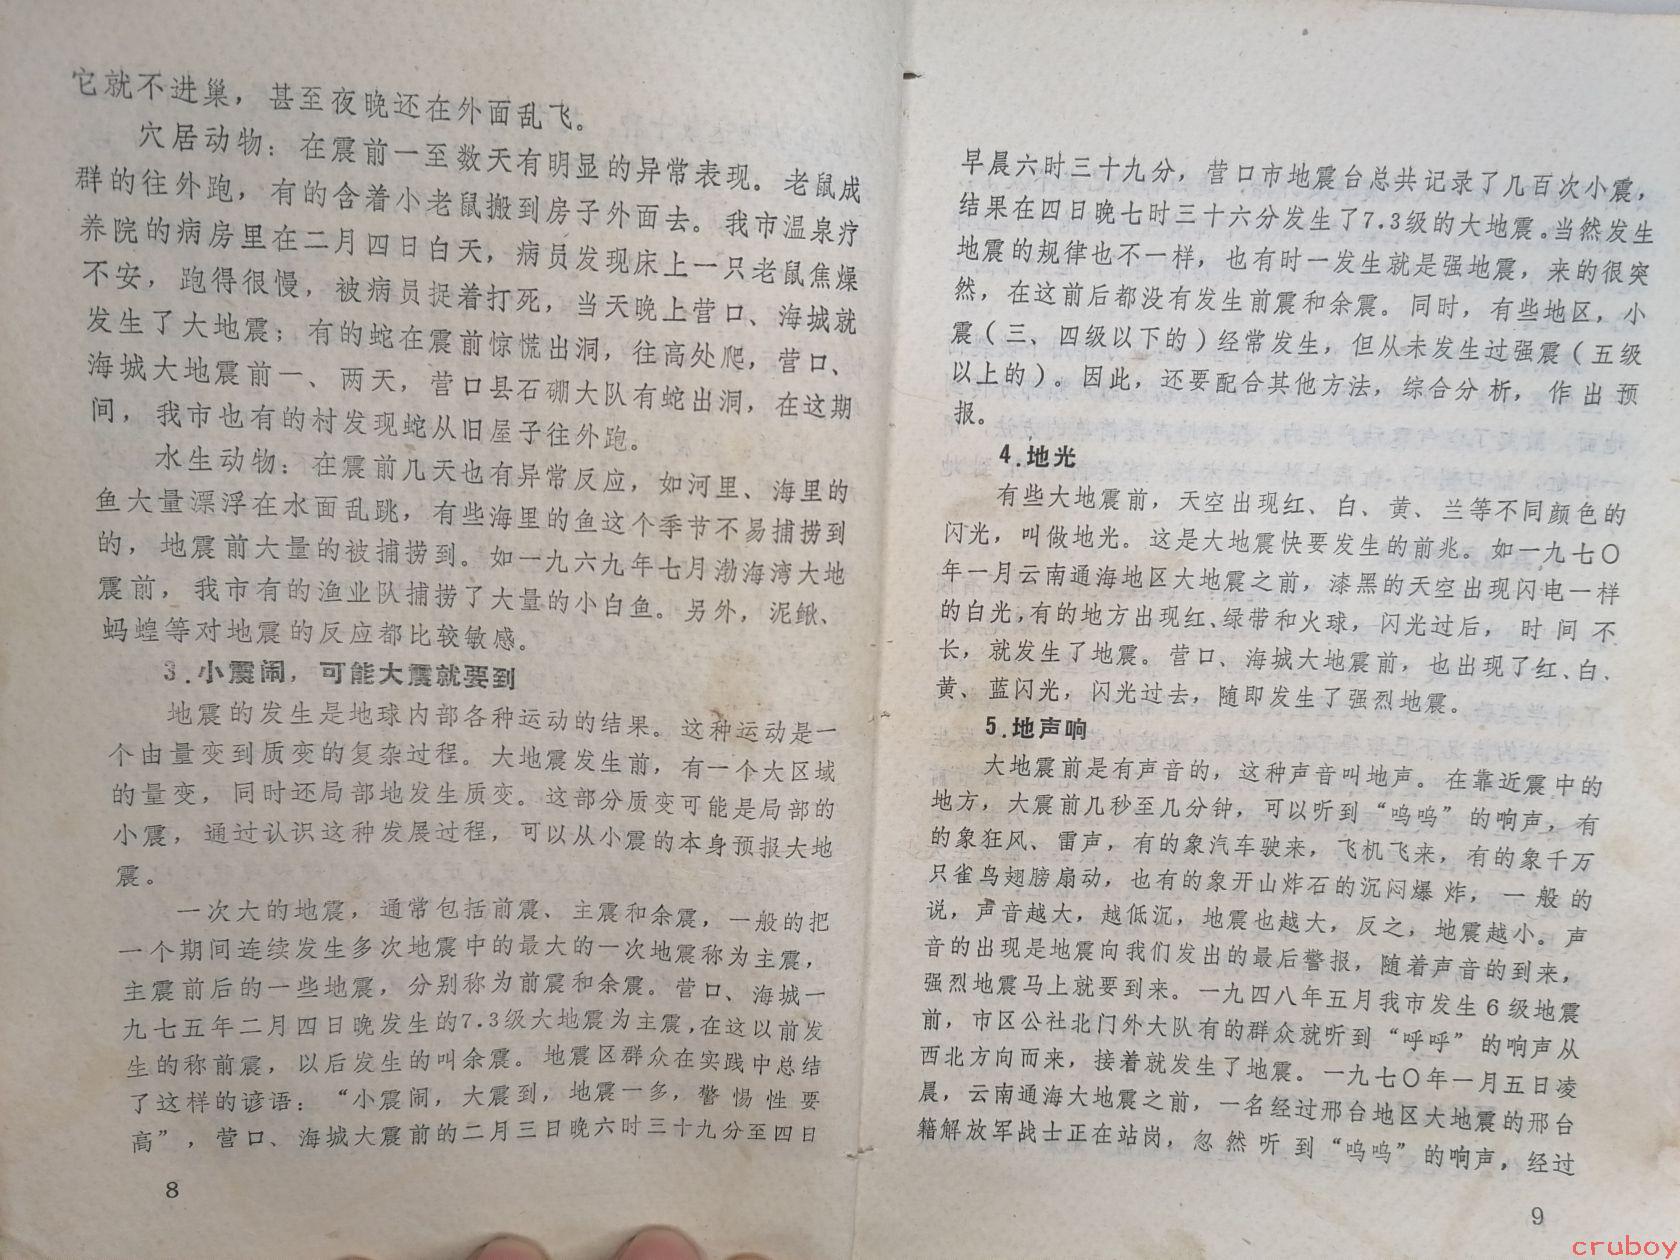 它就不进巢，甚至夜晚还在外面乱飞。
穴居动物：在震前一至数天有明显的异常表现。老鼠成
群的往外跑，有的含着小老鼠搬到房子外面去。我市温泉疗
养院的病房里在二月四日白天，病员发现床上一只老鼠焦燥
不安，跑得很慢，被病员捉着打死，当天晚上营口、海城就
发生了大地震；有的蛇在震前惊慌出洞，往高处爬，营口、
海城大地震前一、两天，营口县石硼大队有蛇出洞，在这期
间，我市也有的村发现蛇从旧屋子往外跑。
水生动物：在震前几天也有异常反应，如河里、海里的
鱼大量漂浮在水面乱跳，有些海里的鱼这个季节不易捕捞到
的，地震前大量的被捕捞到。如一九六九年七月渤海湾大地
震前，我市有的渔业队捕捞了大量的小白鱼。另外，泥鳅、
蚂蝗等对地震的反应都比较敏感。
3.小震闹，可能大震就要到
地震的发生是地球内部各种运动的结果。这种运动是一
个由量变到质变的复杂过程。大地震发生前，有一个大区域
的量变，同时还局部地发生质变。这部分质变可能是局部的
小震，通过认识这种发展过程，可以从小震的本身预报大地
震。
一次大的地震，通常包括前震、主震和余震，一般的把
一个期间连续发生多次地震中的最大的一次地震称为主震，
主震前后的一些地震，分别称为前震和余震。营口、海城一
九七五年二月四日晚发生的7.3级大地震为主震，在这以前发
生的称前震，以后发生的叫余震。地震区群众在实践中总结
了这样的谚语：“小震闹，大震到，地震一多，警惕性要
高”，营口、海城大震前的二月三日晚六时三十九分至四日
8
早晨六时三十九分，营口市地震台总共记录了几百次小震，
结果在四日晚七时三十六分发生了7.3级的大地震。当然发生
地震的规律也不一样，也有时一发生就是强地震，来的很突
然，在这前后都没有发生前震和余震。同时，有些地区，小
震（三、四级以下的）经常发生，但从未发生过强震（五级
以上的）。因此，还要配合其他方法，综合分析，作出预
报。
4.地光
有些大地震前，天空出现红、白、黄、兰等不同颜色的
闪光，叫做地光。这是大地震快要发生的前兆。如一九七〇
年一月云南通海地区大地震之前，漆黑的天空出现闪电一样
的白光，有的地方出现红、绿带和火球，闪光过后，时间不
长，就发生了地震。营口、海城大地震前，也出现了红、白、
黄、蓝闪光，闪光过去，随即发生了强烈地震。
5.地声响
大地震前是有声音的，这种声音叫地声。在靠近震中的
地方，大震前几秒至几分钟，可以听到“呜呜”的响声，有
的象狂风、雷声，有的象汽车驶来，飞机飞来，有的象千万
只雀鸟翅膀扇动，也有的象开山炸石的沉闷爆炸，一般的
说，声音越大，越低沉，地震也越大，反之，地震越小。声
音的出现是地震向我们发出的最后警报，随着声音的到来，
强烈地震马上就要到来。一九四八年五月我市发生6级地震
前，市区公社北门外大队有的群众就听到“呼呼”的响声从
西北方向而来，接着就发生了地震。一九七〇年一月五日凌
晨，云南通海大地震之前，一名经过邢台地区大地震的邢台
籍解放军战士正在站岗，忽然听到“呜呜”的响声，经过
9
cruboy